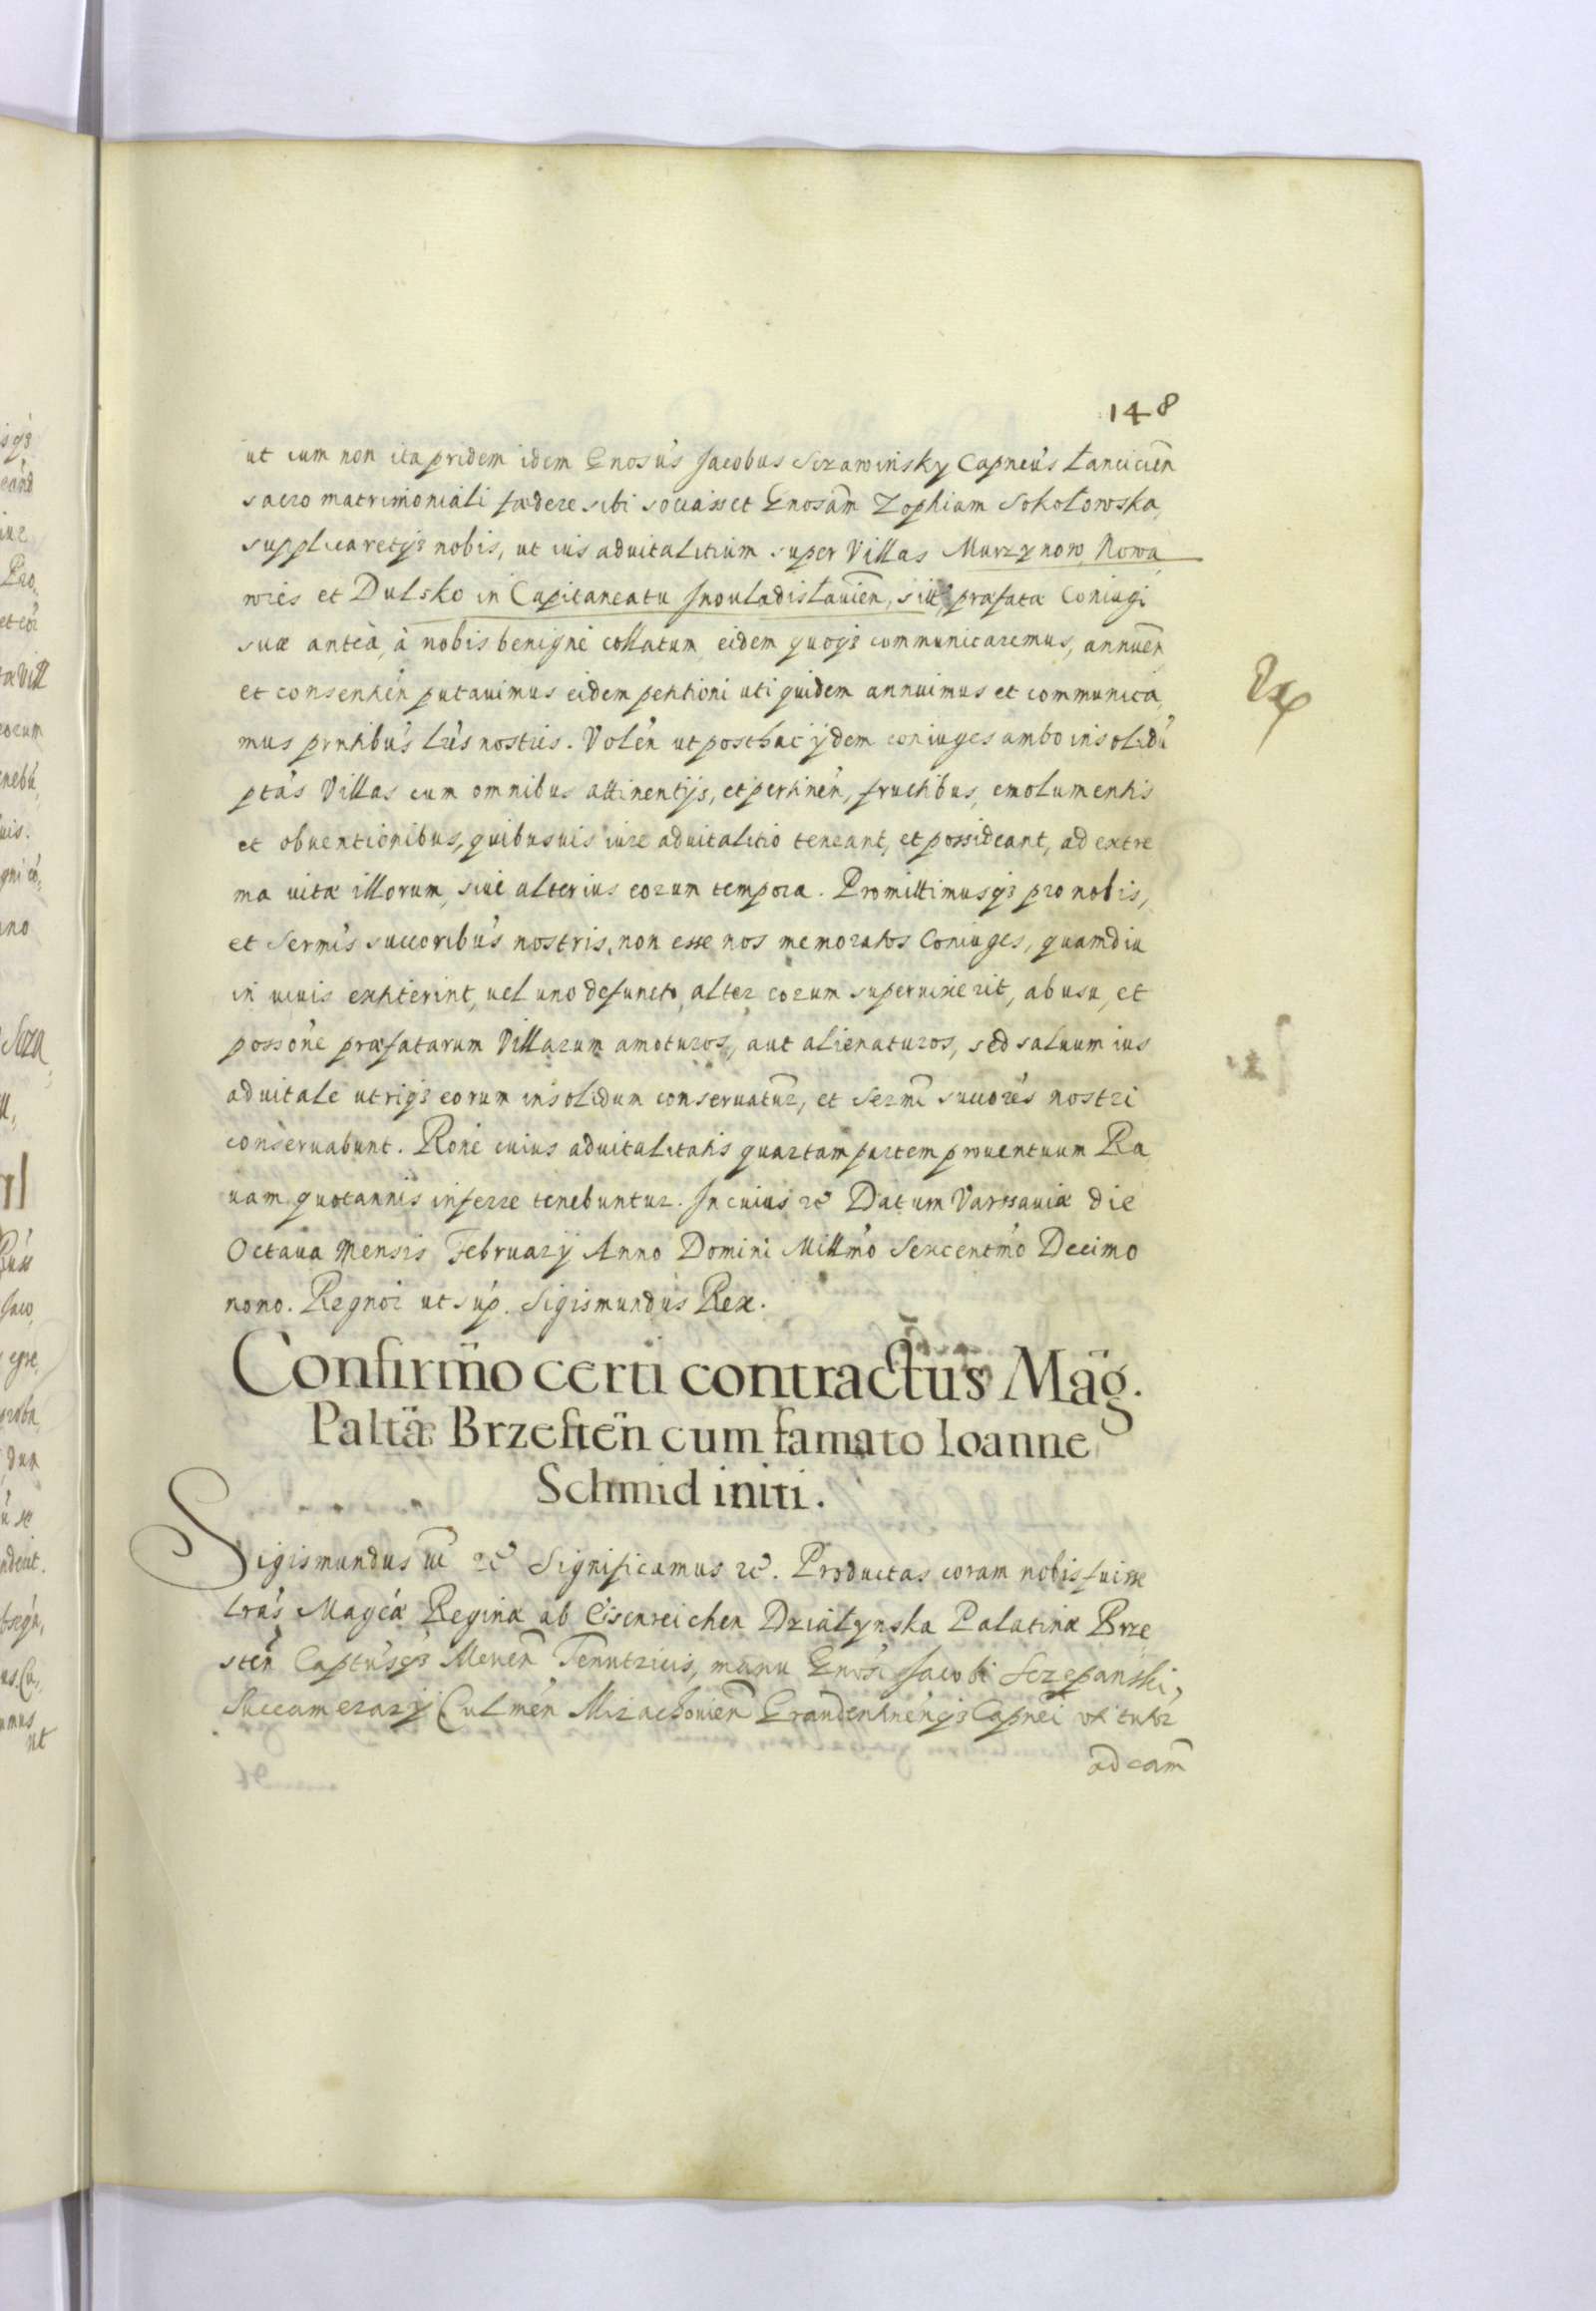 148
ut cum non ita pridem idem Gnosus Jacobus Sczawinsky Capneus Lancicien̄
sacro matrimoniali fædere sibi sociasset Gnosam̄ Zophiam Sokołowska,
supplicaretq3 nobis, ut ius aduitalitium super Villas Murzynow, Nowa
wies et Dulsko in Capitaneatu Jnouladislauien̄, sit̄, præfatæ Coniugi
suæ anteà, à nobis benignè collatum, eidem quoq3 communicaremus, annuen̄
et consentien̄ putauimus eidem petitioni uti quidem annuimus et communica,
mus prntibus lr̄is nostris. Volen̄ ut posthac ijdem coniuges ambo insolidū
ptas Villas cum omnibus attinentijs, et pertinen̄, fructibus, emolumentis
et obuentionibus, quibusuis iure aduitalitio teneant, et possideant, ad extre
ma uitæ illorum, siue alterius eorum tempora. Promittimusq3 pro nobis,
et Sermis succoribus nostris, non esse nos memoratos Coniuges, quamdiu
in uiuis extiterint, uel uno defuncto, alter eorum superuixerit, ab usu, et
possone præfatarum Villarum amoturos, aut alienaturos, sed saluum ius
aduitale utriq3 eorum insolidum conseruatur̄, et Sermi succores nostri
conseruabunt. Rone cuius aduitalitatis quartam partem prouentuum Ra,
uam quotannis inferre tenebuntur. Jn cuius rc̄ Datum Varssauiæ die
Octaua Mensis February Anno Domini Millmo Sexcentmo Decimo
nono. Regnor ut sup. Sigismundus Rex.
Confirm̄o certi contractus Mag̈.
Paltæ Brzesten̄ cum famato Ioanne
Schmid initi.
Sigismundus III rc̄ Significamus rc̄. Productas coram nobis fuisse
lras Magcæ Reginæ ab Eisenreichen Działynska Palatinæ Brze,
sten̄ Captusq3 Tenutricis, manu Gnosi Jacobi Sczepanski,
Succamerarij Culmen̄ Mirachouien̄ Graudentinenq3 Capnei uti tutor
ad eam̄